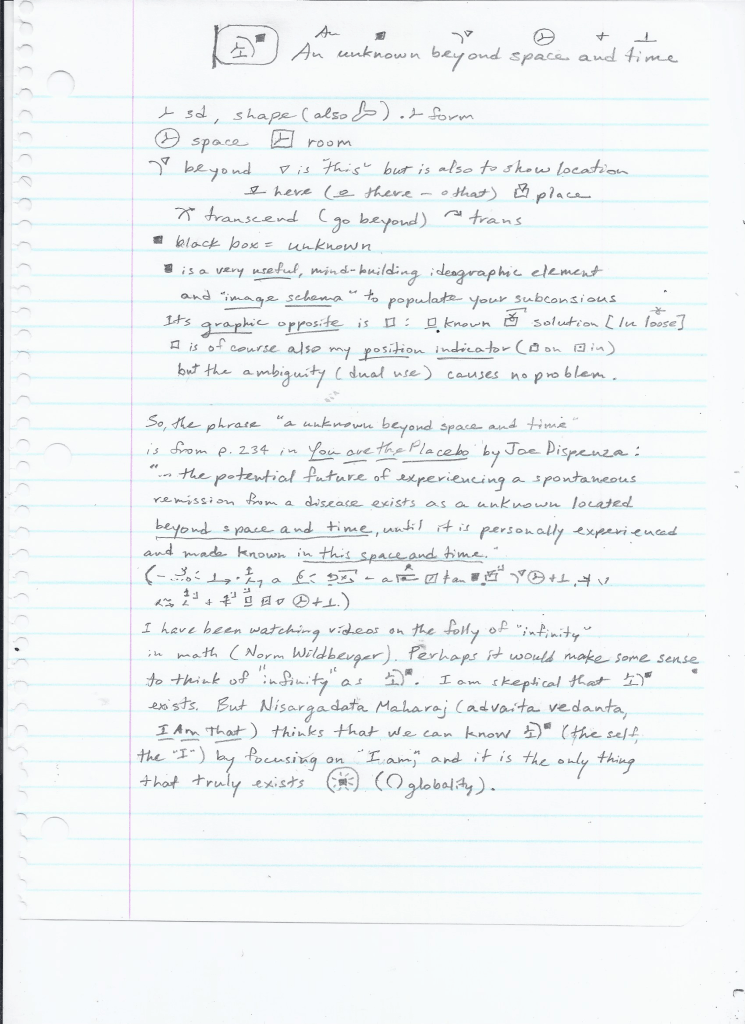 An
An unknown beyond space and time
3d, shape (also ). form
space room
beyond ▽ is "this" but is also to show location
here ( there - that) place
transcend (go beyond) trans
■ black box = unknown
■ is a very useful, mind-building ideographic element
and "image schema" to populate your subconsious
Its graphic opposite is □ : □ known solution [lu loose]
□ is of course also my position indicator ( on in)
but the ambiguity (dual use) causes no problem.
So, the phrase "a unknown beyond space and time"
is from p. 234 in You are the Placebo by Joe Dispenza:
"... the potential future of experiencing a spontaneous
remission from a disease exists as a unknown located
beyond space and time, until it is personally experienced
and made known in this space and time."
I have been watching videos on the folly of "infinity"
in math (Norm Wildberger). Perhaps it would make some sense
to think of "infinity" as . I am skeptical that
exists. But Nisargadata Maharaj (advaita vedanta,
I Am That) thinks that we can know (the self,
the "I") by focusing on "I am," and it is the only thing
that truly exists ( globality).